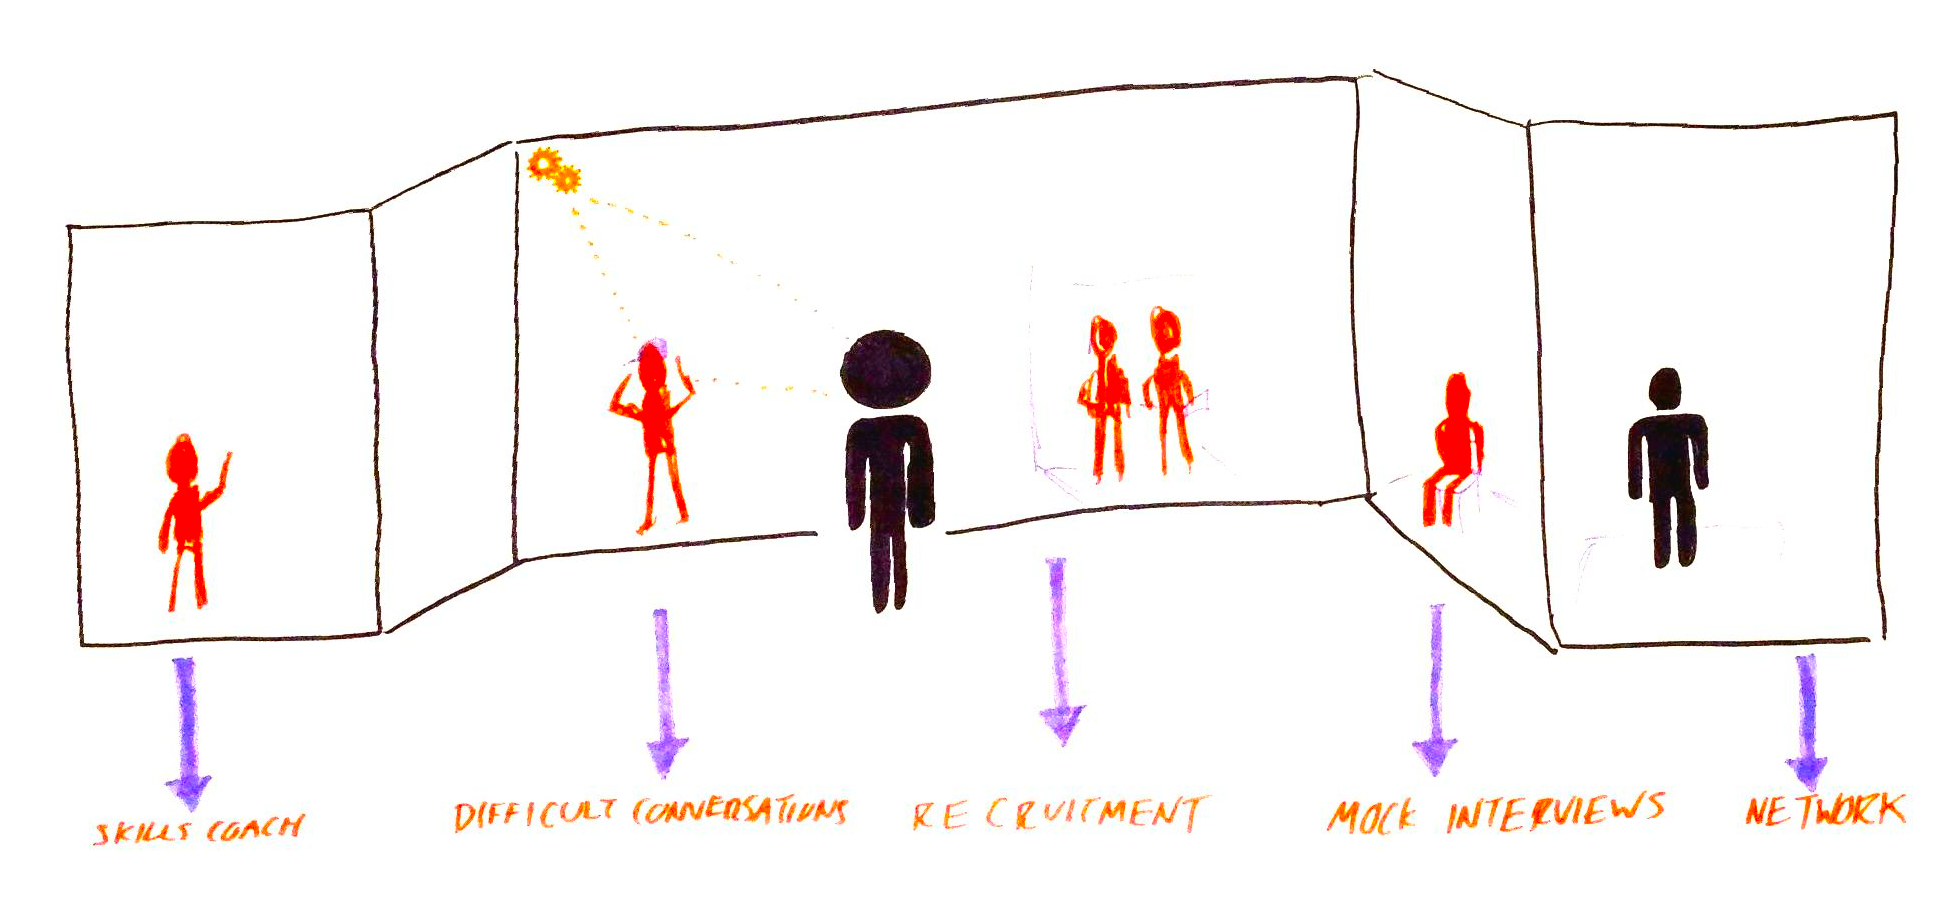 SKILLS COACH
DIFFICULT CONVERSATIONS
RECRUITMENT
MOCK INTERVIEWS
NETWORK